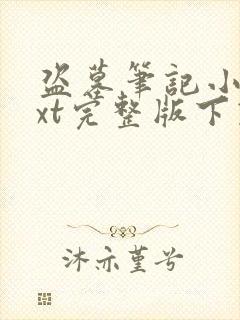 盗墓筆記小
xt完整版下
沐亦堇兮